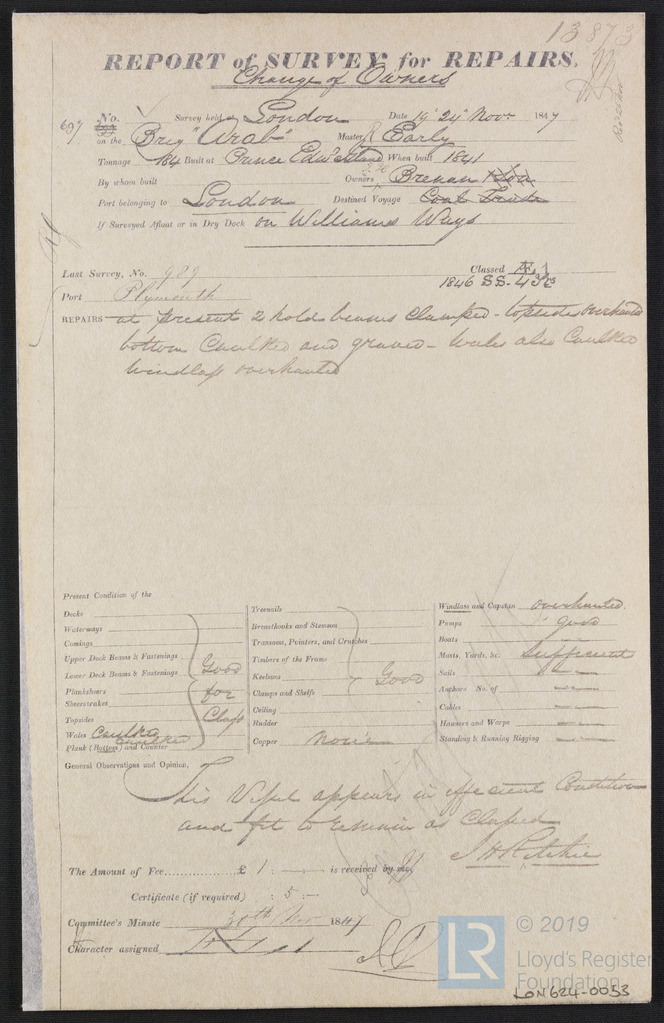 13873
REPORT of SURVEY for REPAIRS.
Change of Owners
697 No. Survey held London Date 19' 24" Novr 1847
on the Brig "Arab" Master R Early
Tonnage 184 Built at Prince Edwd Island When built 1841
By whom built Owners Brenan
Port belonging to London Destined Voyage
If Surveyed Afloat or in Dry Dock on Williams Ways
Last Survey, No. 989 Classed Æ 1
Port Plymouth 1846 SS.
REPAIRS at present 2 hold beams clamped - topsides overhauled
bottom Caulked and graved - Wales also Caulked
Windlass overhauled
Present Condition of the
Decks
Waterways
Comings
Upper Deck Beams & Fastenings
Lower Deck Beams & Fastenings Good
Plankshears for
Sheerstrakes
Topsides Class
Wales Caulked
Plank (Bottom) and Counter Caulked
Treenails
Breasthooks and Stemson
Transoms, Pointers, and Crutches
Timbers of the Frame
Keelsons Good
Clamps and Shelfs
Ceiling
Rudder
Copper None
Windlass and Capstan overhauled.
Pumps good
Boats
Masts, Yards, &c. Sufficient
Sails
Anchors No. of
Cables
Hawsers and Warps
Standing & Running Rigging
General Observations and Opinion,
This Vessel appears in efficient Condition
and fit to remain as Classed
J H Ritchie
The Amount of Fee............ £ 1 : - is received by me,
Certificate (if required) : 5 : -
Committee's Minute 30th Nov 1847
Character assigned
© 2019
LR
Lloyd's Register
Foundation
LON624-0053